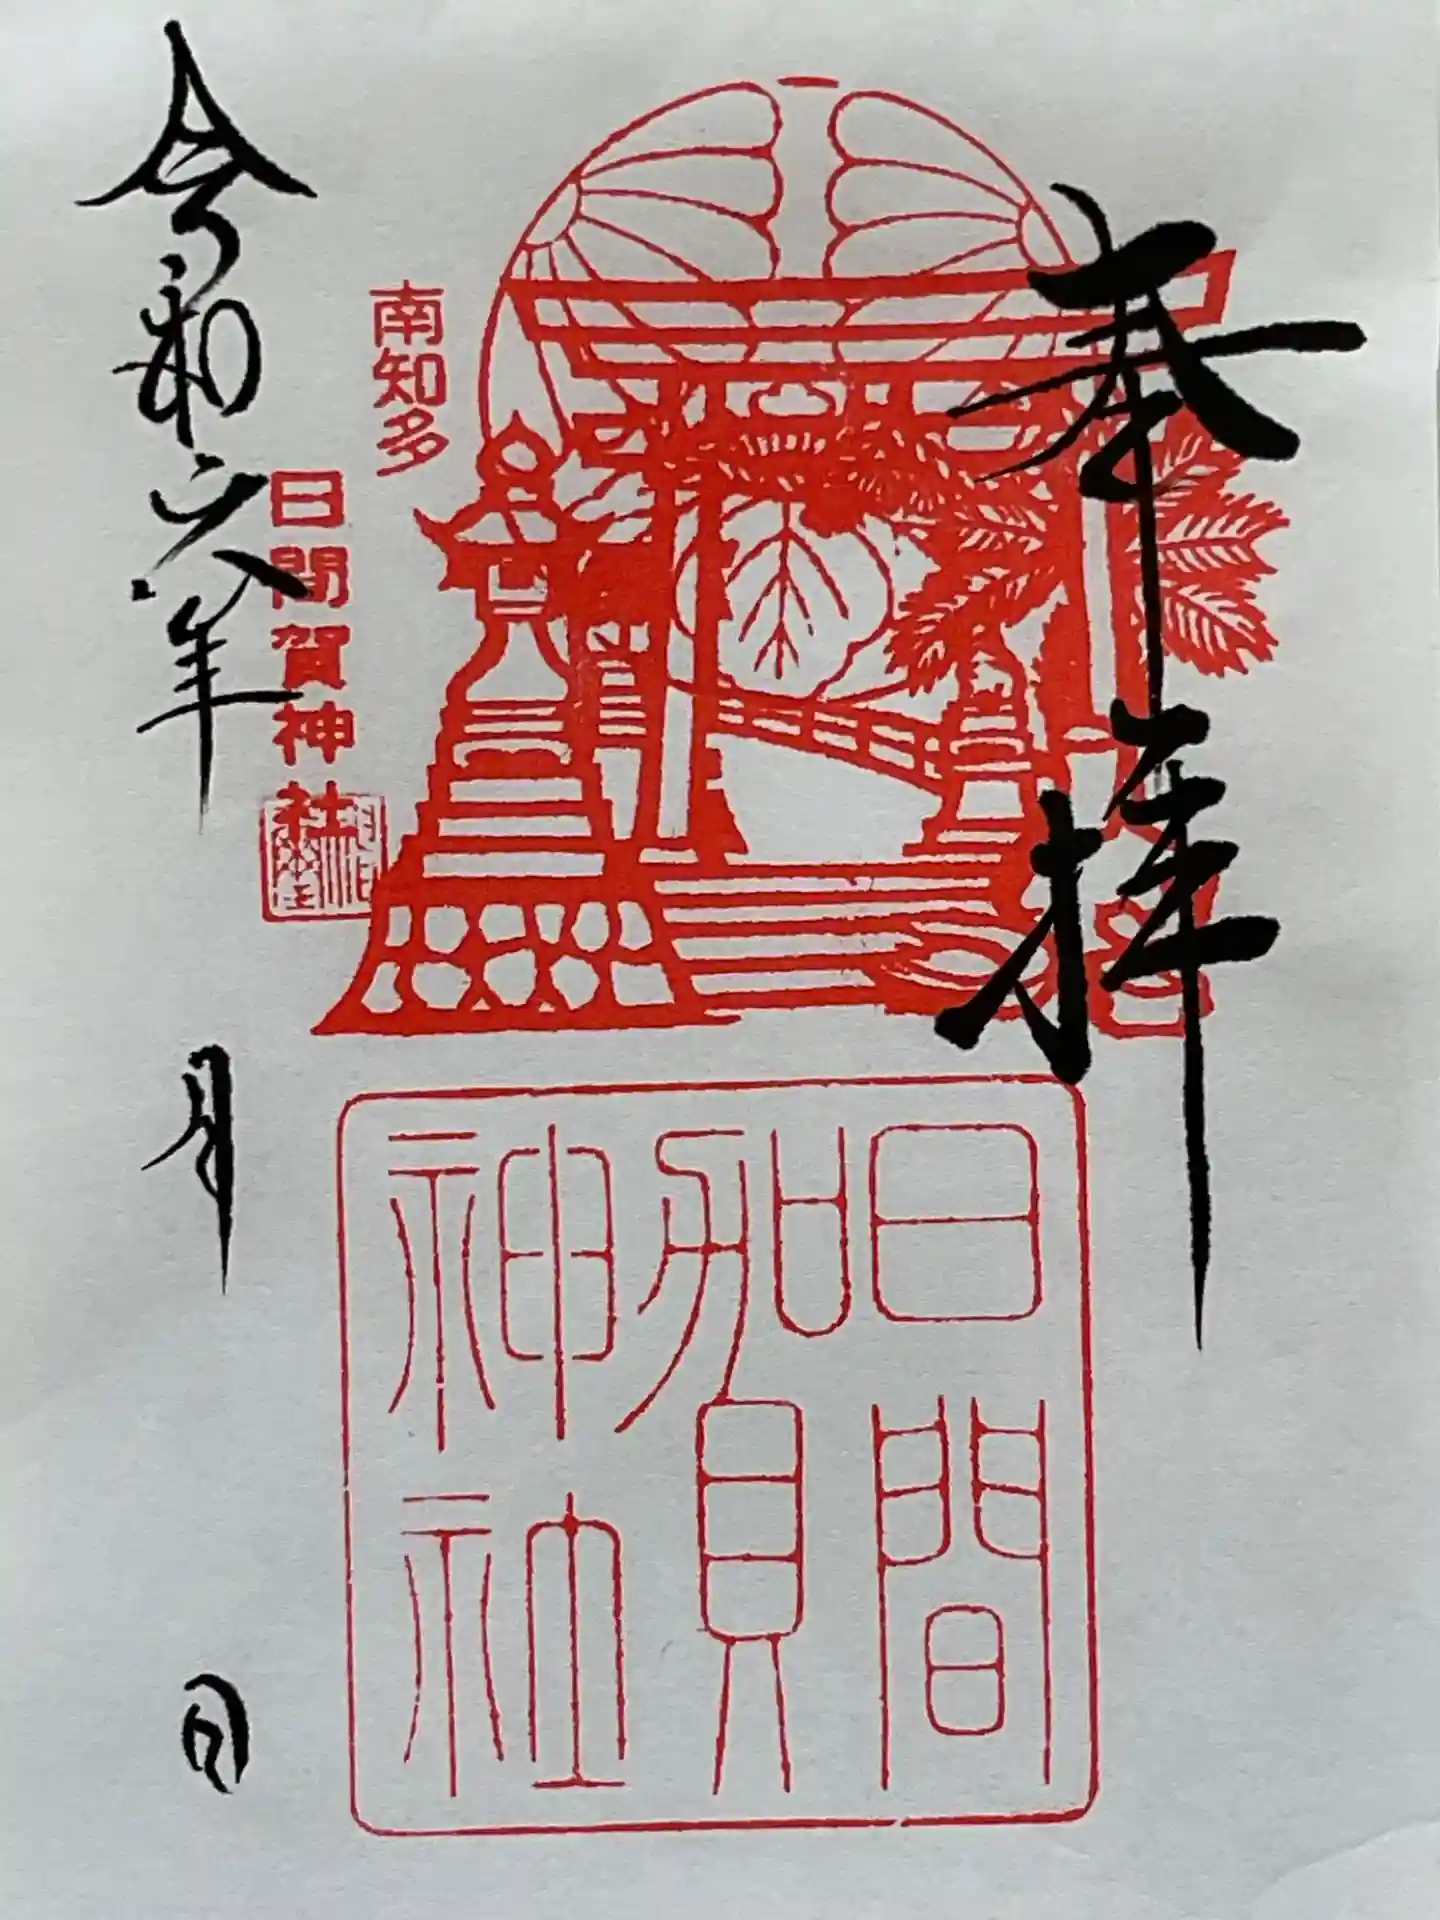 奉拝
南知多
日間賀神社
日間
賀
神社
令和六年
月
日